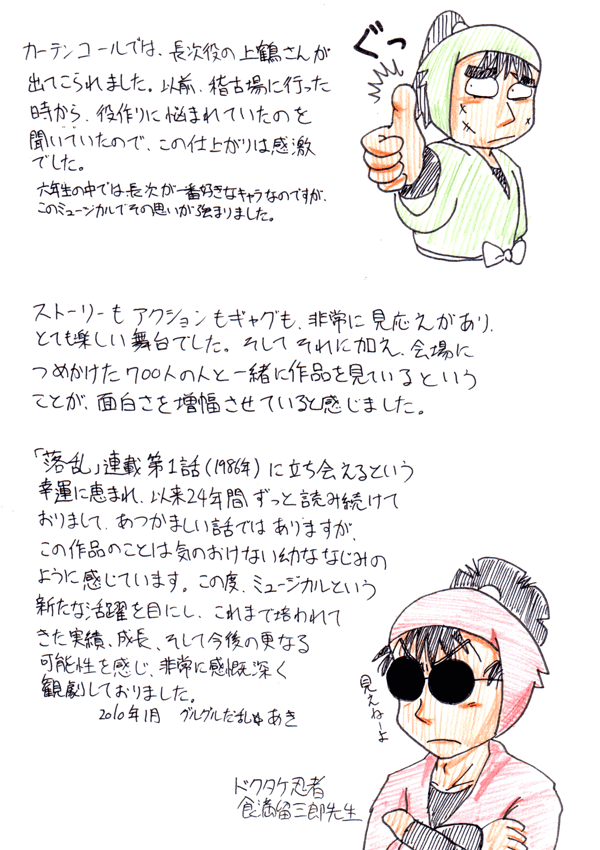 カーテンコールでは、長次役の上鶴さんが
出てこられました。以前、稽古場に行った
時から、役作りに悩まれていたのを
聞いていたので、この仕上がりは感激
でした。
六年生の中では長次が一番好きなキャラなのですが、
このミュージカルでその思いが強まりました。
ぐっ
ストーリーもアクションもギャグも、非常に見応えがあり、
とても楽しい舞台でした。そしてそれに加え、会場に
つめかけた700人の人と一緒に作品を見ているという
ことが、面白さを増幅させていると感じました。
「落乱」連載第1話(1986年)に立ち会えるという
幸運に恵まれ、以来24年間ずっと読み続けて
おりまして、あつかましい話ではありますが、
この作品のことは気のおけない幼ななじみの
ように感じています。この度、ミュージカルという
新たな活躍を目にし、これまで培われて
きた実績、成長、そして今後の更なる
可能性を感じ、非常に感慨深く
観劇しておりました。
2010年1月 グルグルだまし あき
見えねーよ
ドクタケ忍者
食満留三郎先生